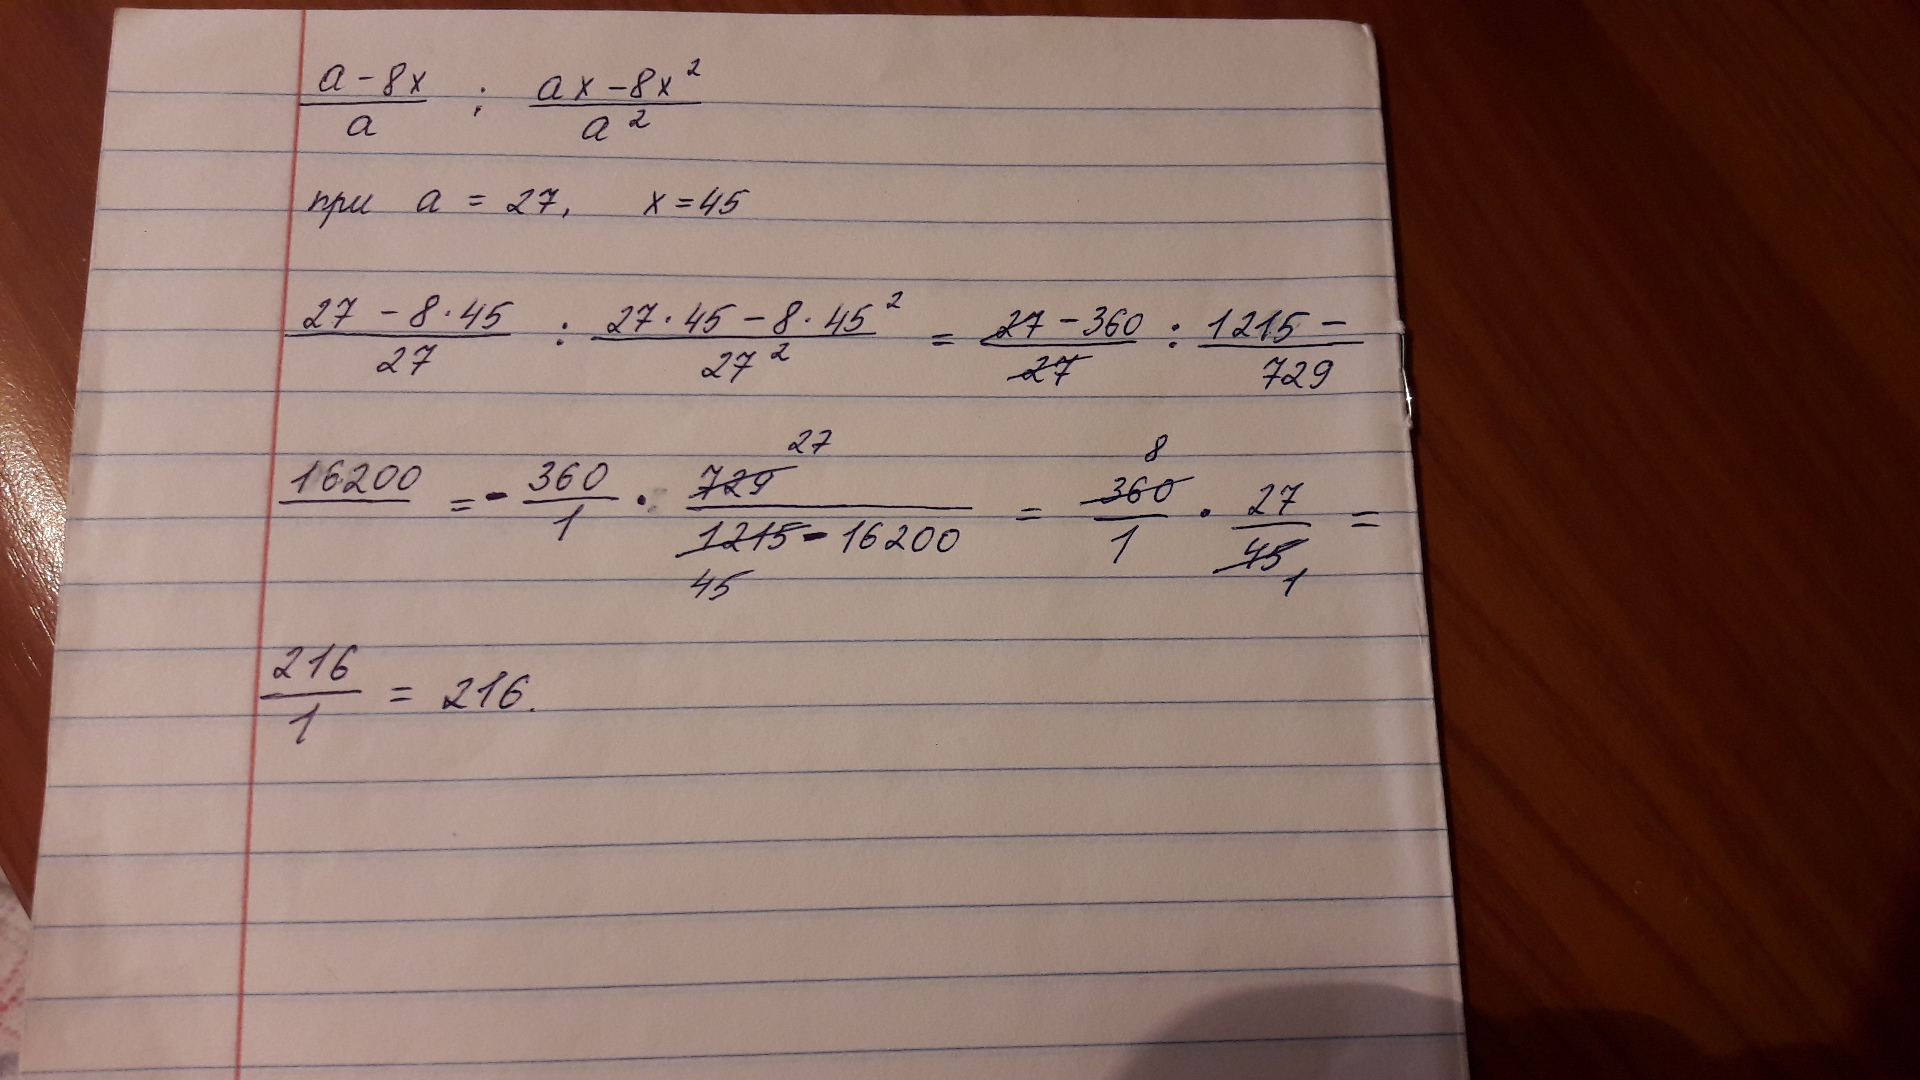 a - 8x / a : ax - 8x² / a²
при a = 27, x = 45
27 - 8 · 45 / 27 : 27 · 45 - 8 · 45² / 27² = 27 - 360 / 27 : 1215 - / 729
16200 = - 360 / 1 · 729 27 / 1215 - 16200 45 = 360 8 / 1 · 27 / 45 1 =
216 / 1 = 216.